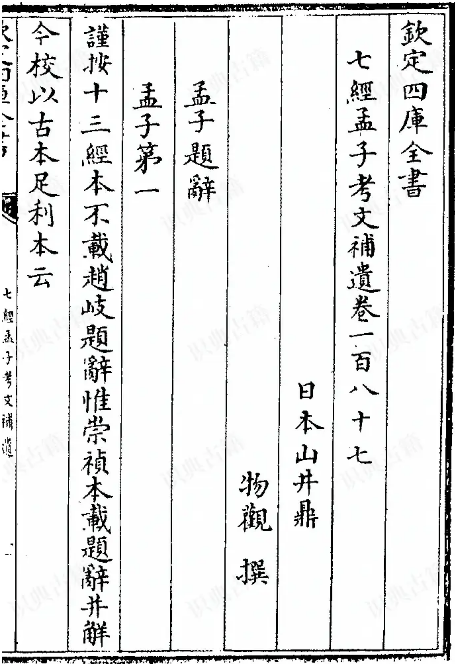 欽定四庫全書
七經孟子考文補遺卷一百八十七
日本山井鼎
物觀 撰
孟子題辭
孟子第一
謹按十三經本不載趙岐題辭惟崇禎本載題辭并解
今校以古本足利本云
七經孟子考文補遺